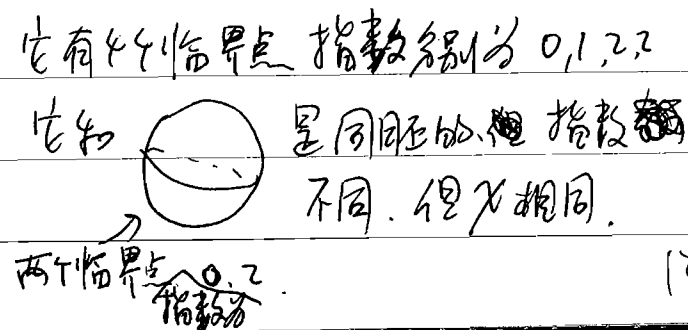 它有4个临界点 指数分别为 0,1,2,2
它和 是同胚的、但 指数
不同. 但χ相同.
两个临界点 0,2.
指数为